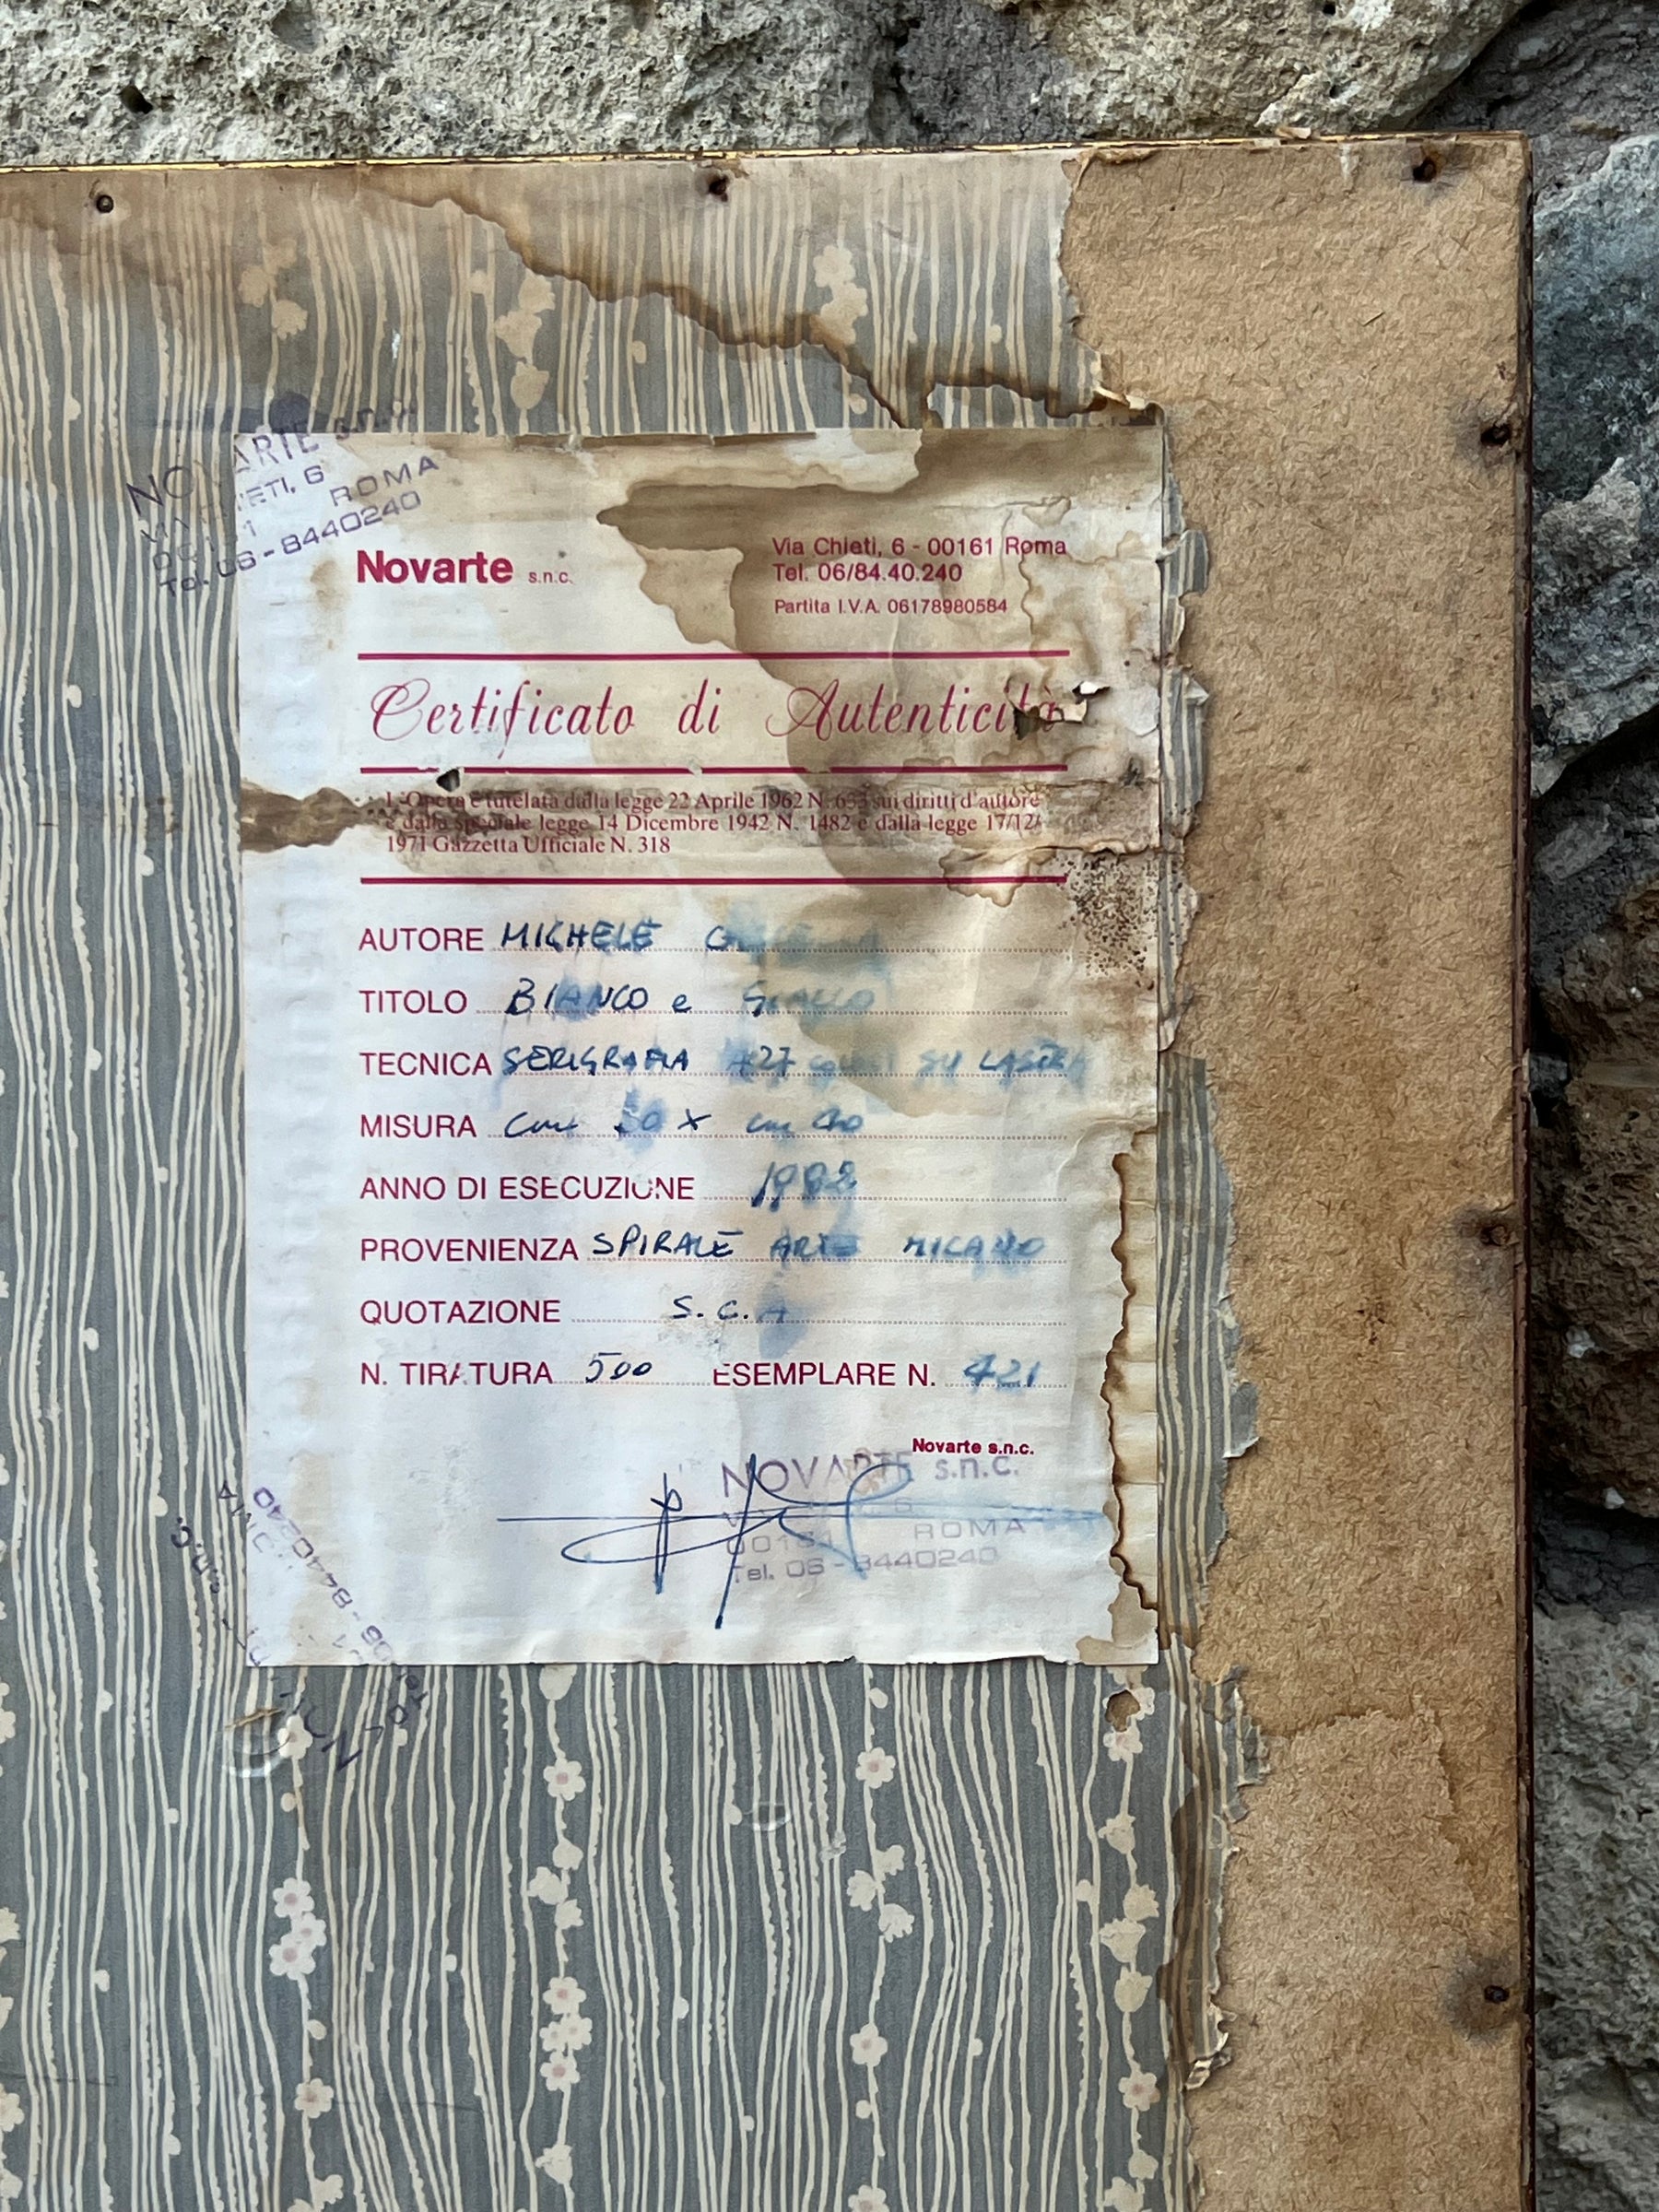 NOVARTE s.n.c.
ROMA
Tel. 06-8440240
Novarte s.n.c.
Via Chieti, 6 - 00161 Roma
Tel. 06/84.40.240
Partita I.V.A. 06178980584
Certificato di Autenticità
L'Opera è tutelata dalla legge 22 Aprile 1962 N. 633 sui diritti d'autore
e dalla speciale legge 14 Dicembre 1942 N. 1482 e dalla legge 17/12/
1971 Gazzetta Ufficiale N. 318
AUTORE MICHELE
TITOLO BIANCO e GIALLO
TECNICA SERIGRAFIA A 27 SU LASTRA
MISURA cm x cm
ANNO DI ESECUZIONE 1982
PROVENIENZA SPIRALE ARTE MILANO
QUOTAZIONE S.C.A
N. TIRATURA 500 ESEMPLARE N. 421
Novarte s.n.c.
NOVARTE s.n.c.
00161 ROMA
Tel. 06-8440240